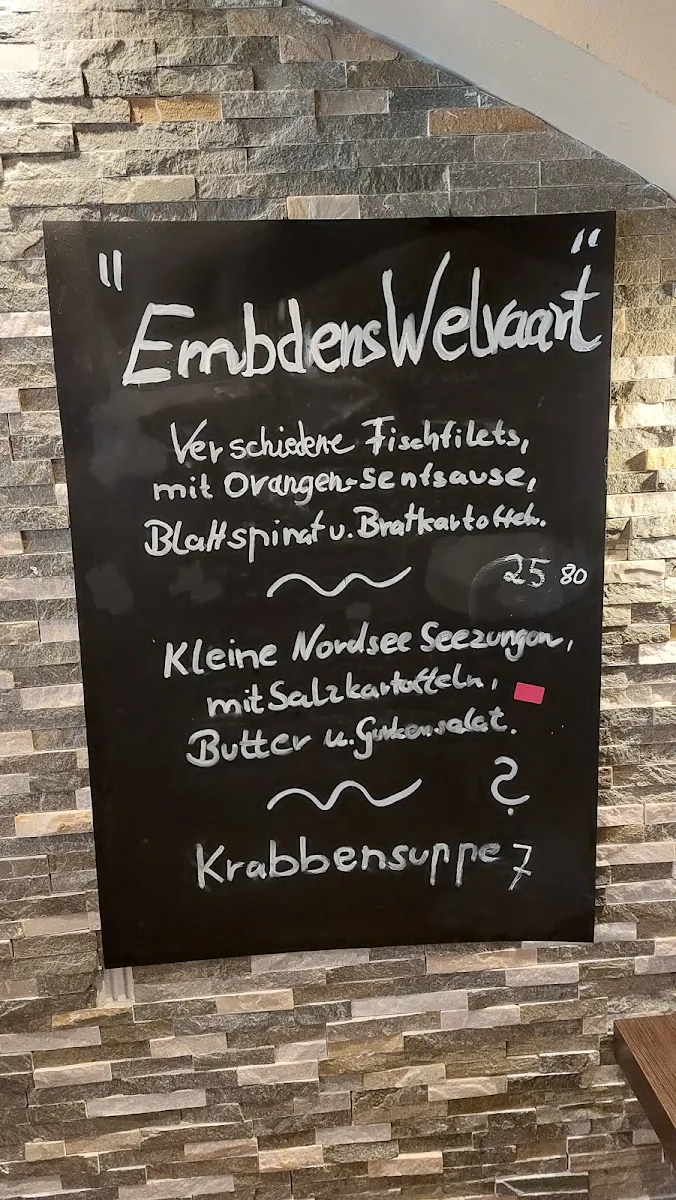 "Embdens Welvaart"
Verschiedene Fischfilets,
mit Orangen-Senfsause,
Blattspinat u. Bratkartoffeln.
25 80
Kleine Nordsee Seezungen,
mit Salzkartoffeln,
Butter u. Gurkensalat.
?
Krabbensuppe 7